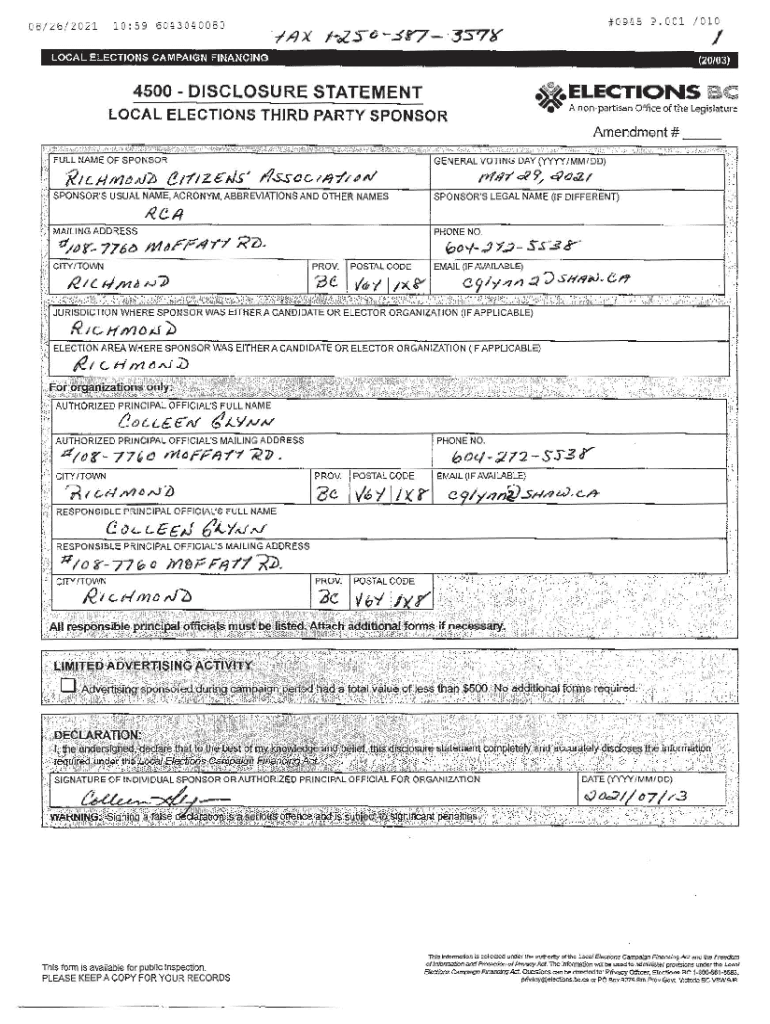 08/26/2021 10:59 6043040083 #0948 P.001 /010
FAX 1-250-387-3578 1
LOCAL ELECTIONS CAMPAIGN FINANCING (20/03)
4500 - DISCLOSURE STATEMENT
LOCAL ELECTIONS THIRD PARTY SPONSOR
ELECTIONS BC
A non-partisan Office of the Legislature
Amendment #
FULL NAME OF SPONSOR GENERAL VOTING DAY (YYYY/MM/DD)
RICHMOND CITIZENS' ASSOCIATION MAY 29, 2021
SPONSOR'S USUAL NAME, ACRONYM, ABBREVIATIONS AND OTHER NAMES SPONSOR'S LEGAL NAME (IF DIFFERENT)
RCA
MAILING ADDRESS PHONE NO.
#108-7760 MOFFATT RD. 604-272-5538
CITY/TOWN PROV. POSTAL CODE EMAIL (IF AVAILABLE)
RICHMOND BC V6Y 1X8 cglynn2@SHAW.CA
JURISDICTION WHERE SPONSOR WAS EITHER A CANDIDATE OR ELECTOR ORGANIZATION (IF APPLICABLE)
RICHMOND
ELECTION AREA WHERE SPONSOR WAS EITHER A CANDIDATE OR ELECTOR ORGANIZATION (IF APPLICABLE)
RICHMOND
For organizations only:
AUTHORIZED PRINCIPAL OFFICIAL'S FULL NAME
COLLEEN GLYNN
AUTHORIZED PRINCIPAL OFFICIAL'S MAILING ADDRESS PHONE NO.
#108-7760 MOFFATT RD. 604-272-5538
CITY/TOWN PROV. POSTAL CODE EMAIL (IF AVAILABLE)
RICHMOND BC V6Y 1X8 cglynn2@SHAW.CA
RESPONSIBLE PRINCIPAL OFFICIAL'S FULL NAME
COLLEEN GLYNN
RESPONSIBLE PRINCIPAL OFFICIAL'S MAILING ADDRESS
#108-7760 MOFFATT RD.
CITY/TOWN PROV. POSTAL CODE
RICHMOND BC V6Y 1X8
All responsible principal officials must be listed. Attach additional forms if necessary.
LIMITED ADVERTISING ACTIVITY
Advertising sponsored during campaign period had a total value of less than $500. No additional forms required.
DECLARATION:
I, the undersigned, declare that to the best of my knowledge and belief, this disclosure statement completely and accurately discloses the information
required under the Local Elections Campaign Financing Act.
SIGNATURE OF INDIVIDUAL SPONSOR OR AUTHORIZED PRINCIPAL OFFICIAL FOR ORGANIZATION DATE (YYYY/MM/DD)
Colleen Glynn 2021/07/13
WARNING: Signing a false declaration is a serious offence and is subject to significant penalties.
This form is available for public inspection.
PLEASE KEEP A COPY FOR YOUR RECORDS
This information is collected under the authority of the Local Elections Campaign Financing Act and the Freedom
of Information and Protection of Privacy Act. The information will be used to administer provisions under the Local
Elections Campaign Financing Act. Questions can be directed to: Privacy Officer, Elections BC 1-800-661-8683,
privacy@elections.bc.ca or PO Box 9275 Stn Prov Govt, Victoria BC V8W 9J6